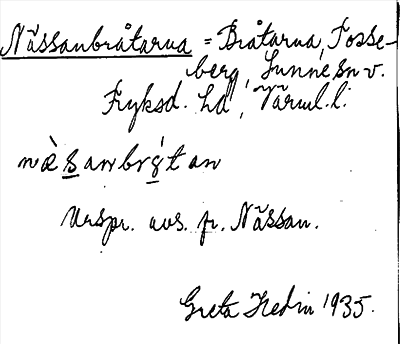 Nässanbråtarna = Bråtarna, Fosse-
berg, Sunne sn v.
Fryksd. hd, Värml. l.
næ̀sanbrɷ́tan
Urspr. avs. fr. Nässan.
Greta Hedin 1935.